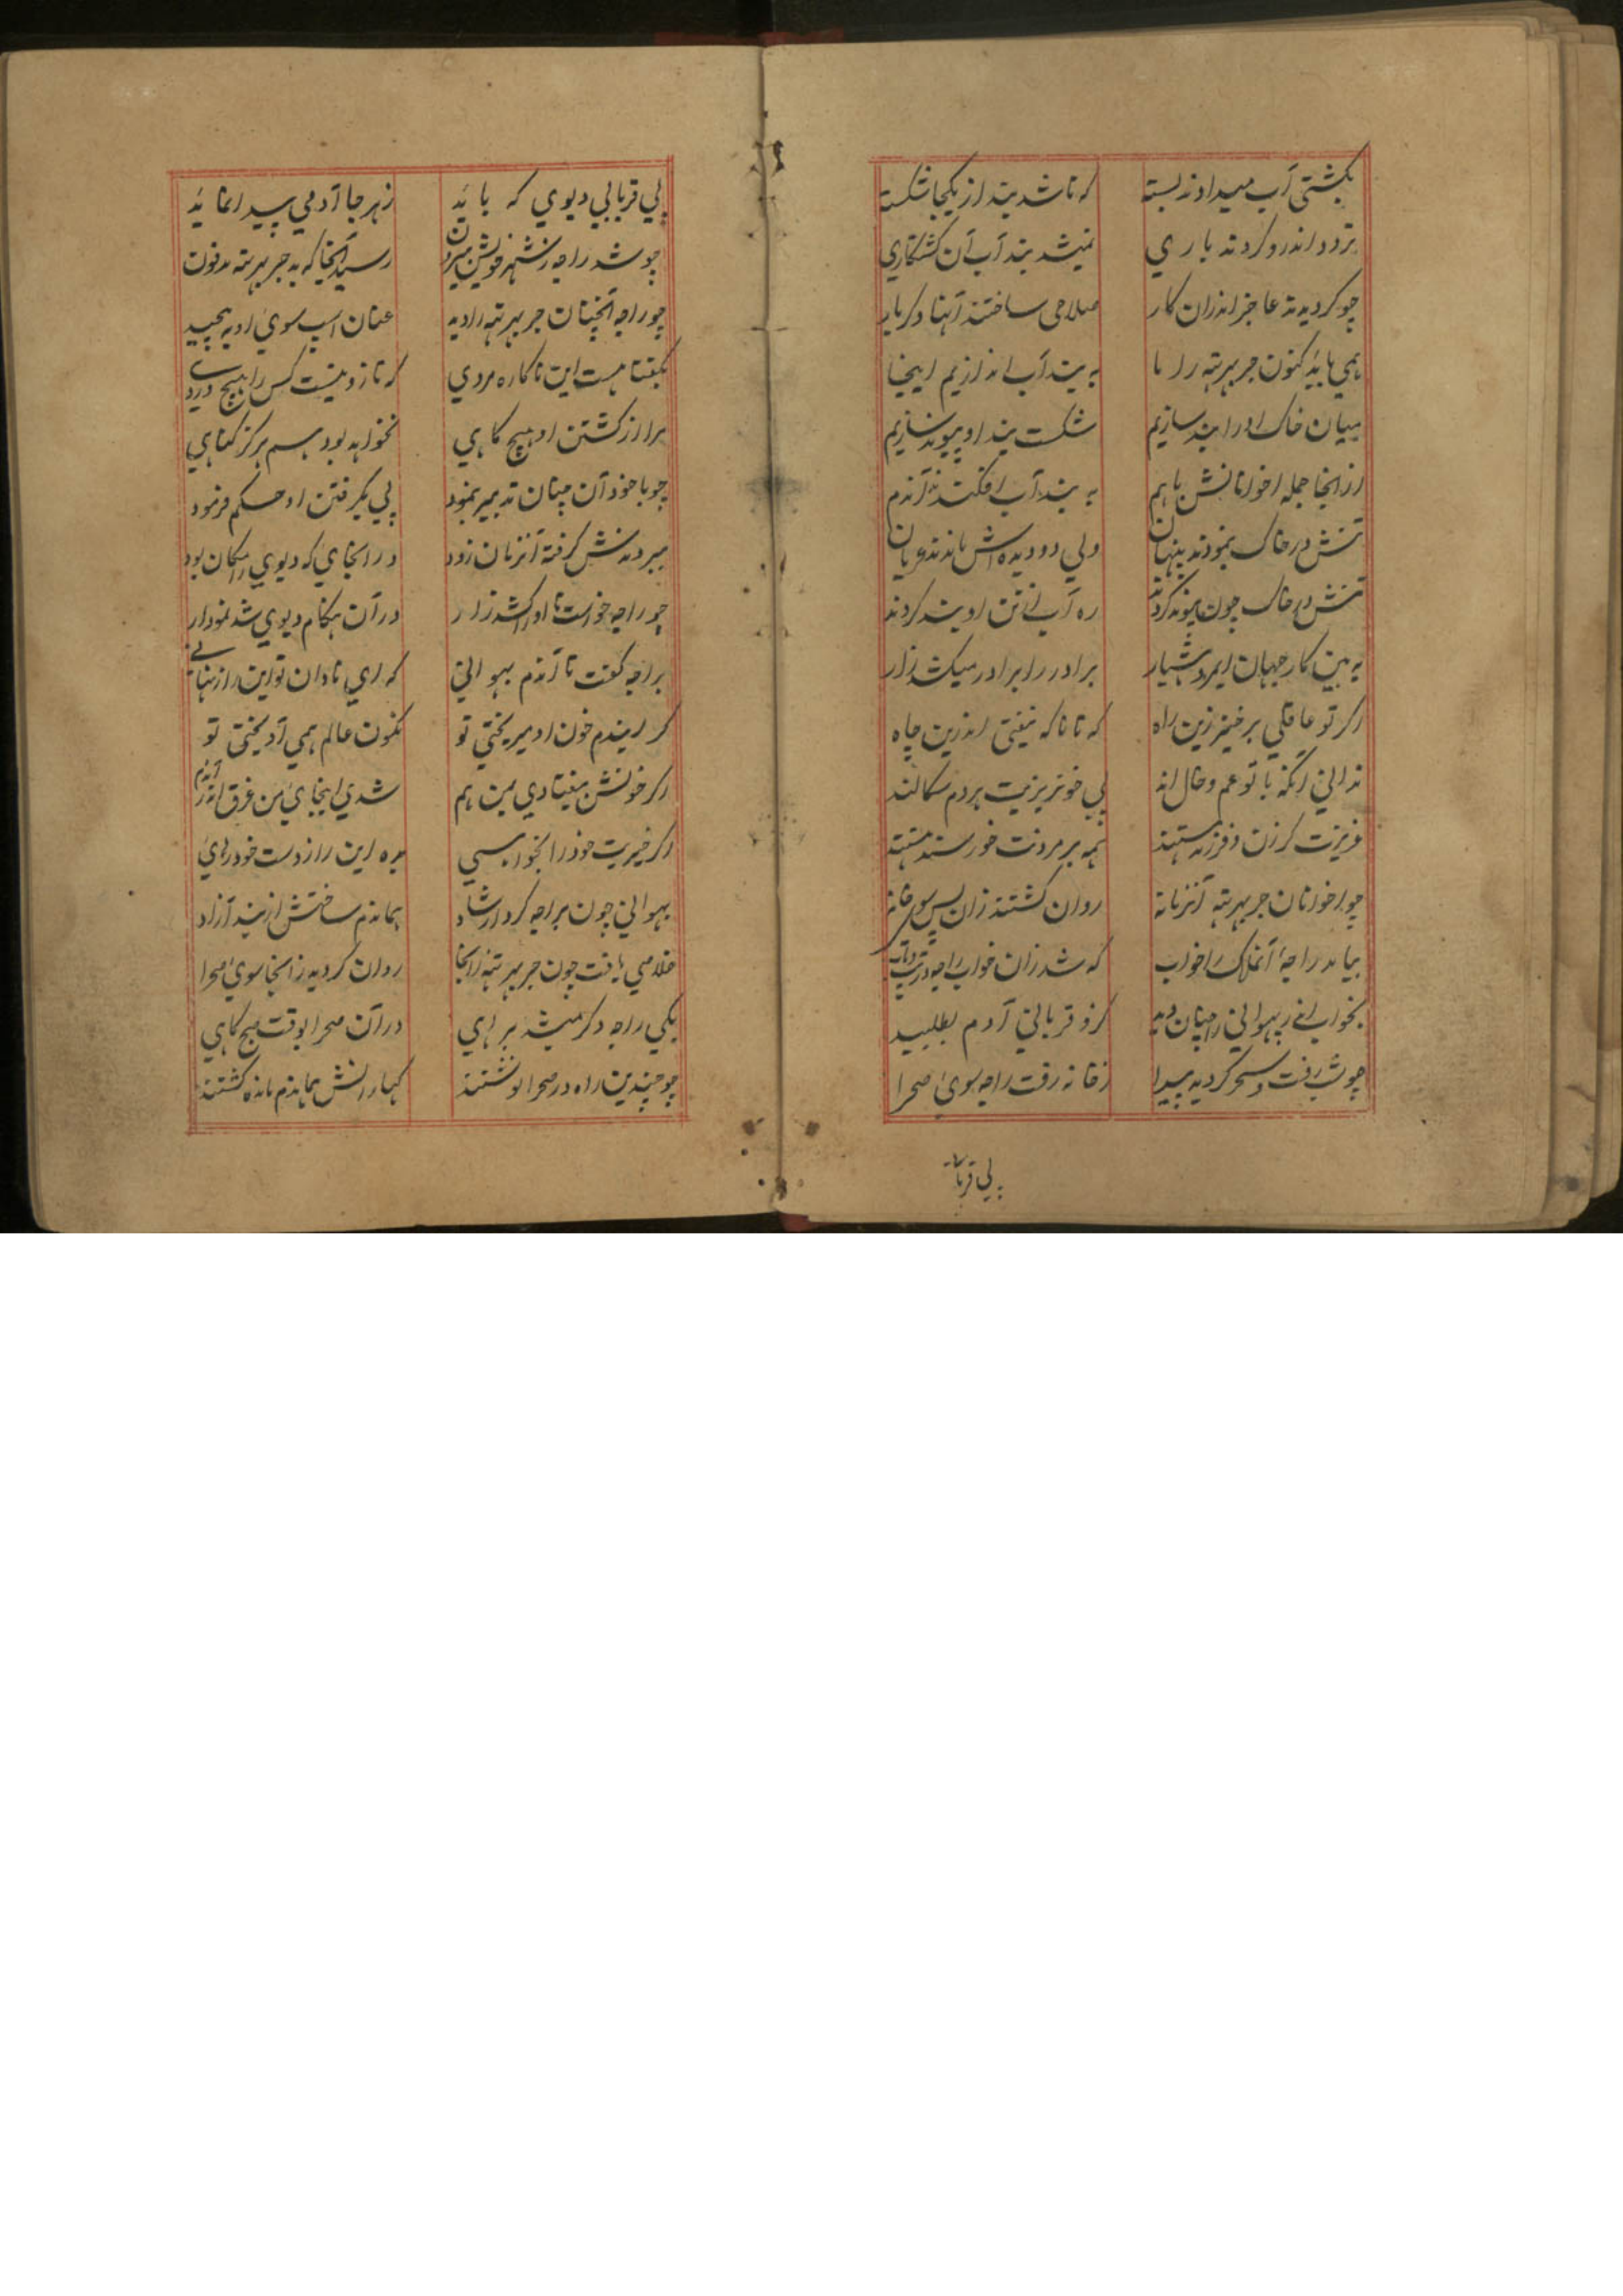 بکشتی آب میدادند بسته که تا شد بند از یکجا شکسته
تردد اندرو کردند باری نمیشد بند آب آن کشتکاری
چو کردیدند عاجز اندران کار صلاحی ساختند آنها دکر بار
همی باید کنون جربهرته را با به بند آب اندازیم اینجا
میان خاک او را بند سازیم شکست بند او پیوند سازیم
از انجا جمله اخوانانش باهم به بند آب افکندند آندم
تنش در خاک بنمودند پنهان ولی دو دیده اش ماندند عریان
تنش در خاک چون پیوند کردند ره آب از تن او بند کردند
به بین کار جهان ایمرد هشیار برادر را برادر میکشد زار
اکر تو عاقلی برخیز زین راه که تا ناکه نیفتی اندرین چاه
ندانی آنکه با تو عم و خال اند پی خونریزیت هردم سکالند
عزیزت کر زن و فرزند هستند همه بر مردنت خورسند هستند
چو اخوانان جربهرته آنزمانه روان کشتند زان پس سوی خانه
بیامد راجهٔ آنملک را خواب که شد زان خواب راجه در تب و تاب
بخواب اندر بهوانی را چنان دید کزو قربانی آدم بطلبید
چو شب رفت و سحر کردید پیدا ز خانه رفت راجه سوی صحرا
پی قربا
پی قربانی دیوی که باید ز هر جا آدمی پیدا نماید
چو شد راجه ز شهر خویش بیرون رسید آنجا که بد جربهرته مدفون
چو راجه آنچنان جربهرته را دید عنان اسب سوی او به پیچید
بکفتا هست این ناکاره مردی که تا زو نیست کس را هیچ دردی
مرا از کشتن او هیچ کاهی نخواهد بود هم هرکز کناهی
چو با خود آن چنان تدبیر بنمود پی بکرفتن او حکم فرمود
ببردندش کرفته آنزمان زود در انجای که دیوی را مکان بود
چو راجه خواست تا او را کشد زار در آن هنکام دیوی شد نمودار
براجه کفت تا آندم بهوانی که ای نادان تو این راز نهانی
کر ایندم خون او میریختی تو نکون عالم همی آویختی تو
اکر خونش بیفتادی مین هم شدی اینجای من غرق اندر آندم
اکر خیریت خود را بخواهی بده این را ز دست خود رهای
بهوانی چون براجه کرد ارشاد هماندم ساختش از بند آزاد
خلاصی یافت چون جربهرته زانجا روان کردید زانجا سوی صحرا
یکی راجه دکر میشد براهی در آن صحرا بوقت صبحکاهی
چو چندین راه در صحرا نوشتند کهارانش هماندم مانده کشتند